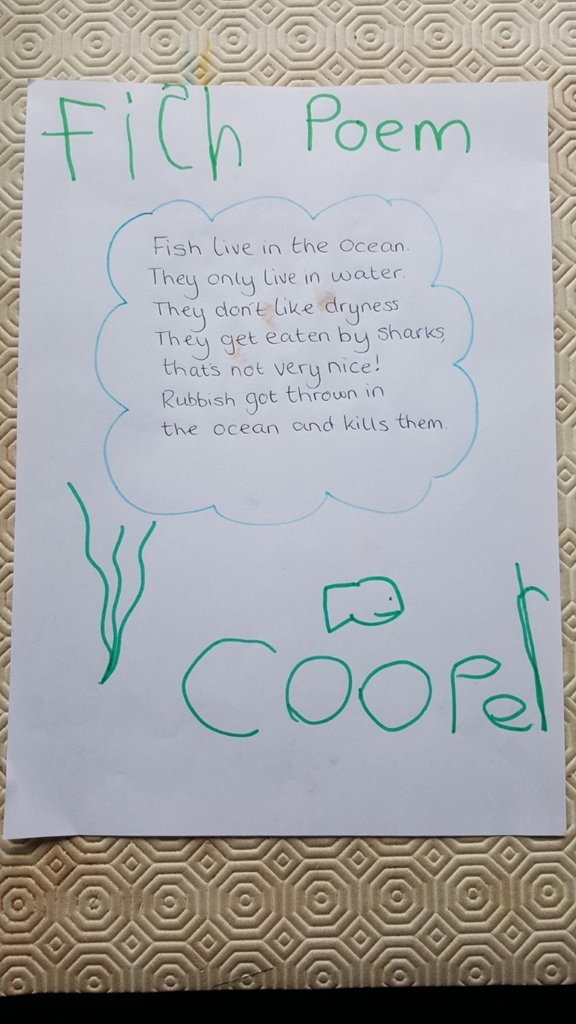 Fich Poem
Fish live in the ocean.
They only live in water.
They don't like dryness
They get eaten by sharks,
that's not very nice!
Rubbish got thrown in
the ocean and kills them.
Cooper